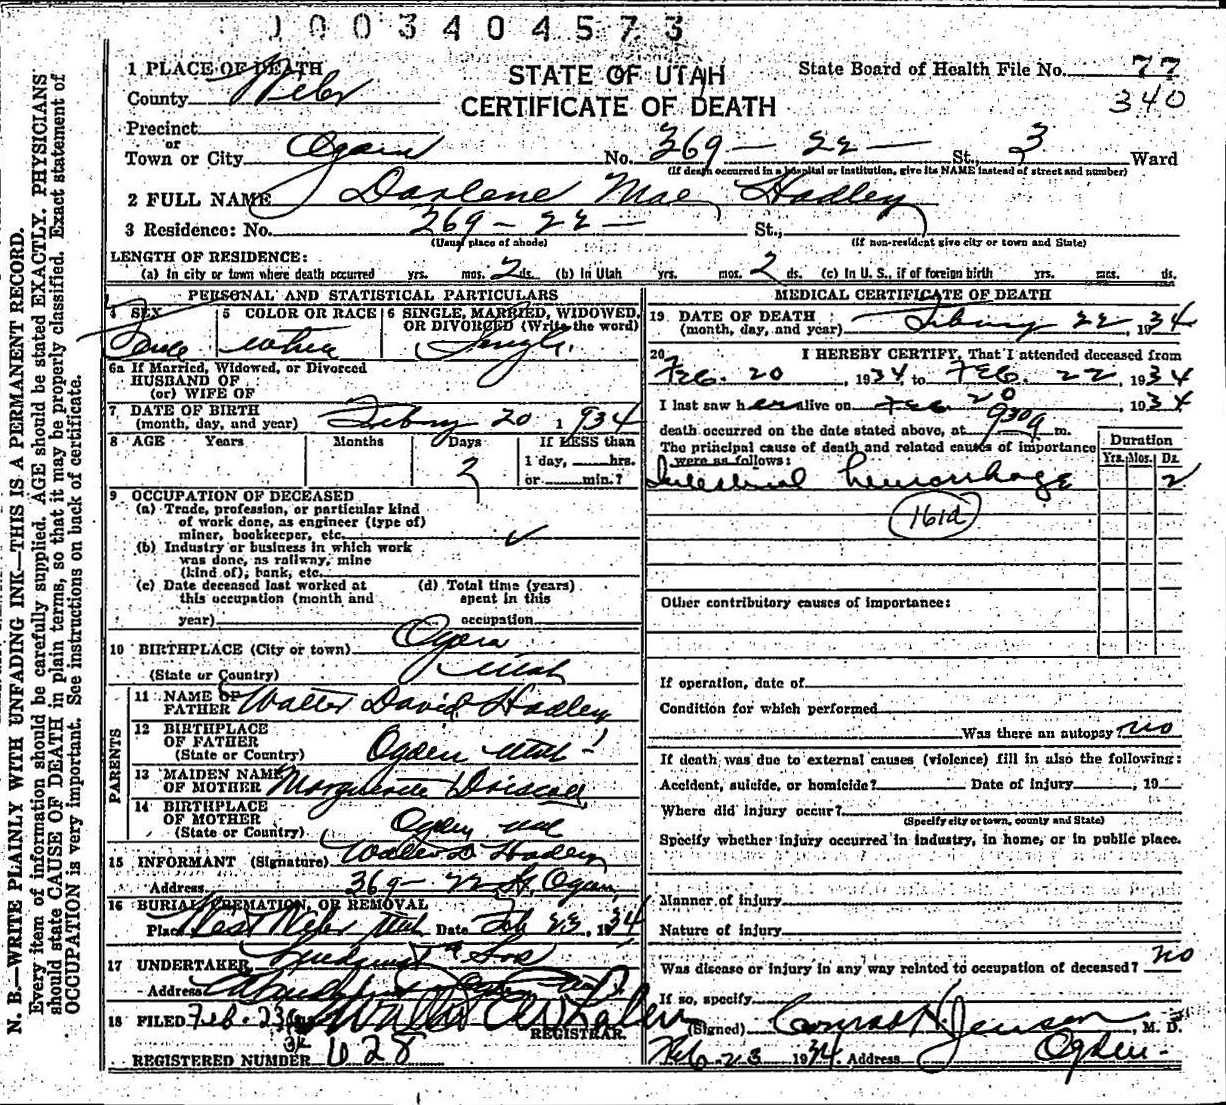 1003404573
1 PLACE OF DEATH
STATE OF UTAH
CERTIFICATE OF DEATH
State Board of Health File No. 77
340
County Weber
Precinct
or
Town or City Ogden No. 369 — 22 — St., 3 Ward
(If death occurred in a hospital or institution, give its NAME instead of street and number)
2 FULL NAME Darlene Mae Hadley
3 Residence: No. 369 — 22 — St.,
(Usual place of abode) (If non-resident give city or town and State)
LENGTH OF RESIDENCE:
(a) In city or town where death occurred yrs. mos. 2 ds. (b) In Utah yrs. mos. 2 ds. (c) In U. S., if of foreign birth yrs. mos. ds.
PERSONAL AND STATISTICAL PARTICULARS
4 SEX
5 COLOR OR RACE
White
6 SINGLE, MARRIED, WIDOWED, OR DIVORCED (Write the word)
Single
6a If Married, Widowed, or Divorced
HUSBAND OF
(or) WIFE OF
7 DATE OF BIRTH
(month, day, and year) 20 1934
8 AGE Years Months Days If LESS than
2 1 day, hrs.
or min.?
9 OCCUPATION OF DECEASED
(a) Trade, profession, or particular kind
of work done, as engineer (type of)
miner, bookkeeper, etc. ✓
(b) Industry or business in which work
was done, as railway, mine
(kind of), bank, etc.
(c) Date deceased last worked at
this occupation (month and
year)
(d) Total time (years)
spent in this
occupation
10 BIRTHPLACE (City or town) Ogden
(State or Country) Utah
PARENTS
11 NAME OF
FATHER Walter David Hadley
12 BIRTHPLACE
OF FATHER
(State or Country) Ogden Utah
13 MAIDEN NAME
OF MOTHER Marguerite Driscoll
14 BIRTHPLACE
OF MOTHER
(State or Country) Ogden Utah
15 INFORMANT (Signature) Walter D Hadley
Address 369 — 22 St. Ogden
16 BURIAL, CREMATION, OR REMOVAL
Place West Weber Utah Date Feb 23, 1934
17 UNDERTAKER Lindquist & Sons
Address Ogden
18 FILED Feb. 23 Walter
34 REGISTRAR.
REGISTERED NUMBER 028
MEDICAL CERTIFICATE OF DEATH
19 DATE OF DEATH
(month, day, and year) 22, 1934
20 I HEREBY CERTIFY, That I attended deceased from
Feb. 20, 1934 to Feb. 22, 1934
I last saw her alive on Feb 20, 1934
death occurred on the date stated above, at 930 a m.
The principal cause of death and related causes of importance
were as follows:
Duration
Yrs. Mos. Ds.
Intestinal hemorrhage 2
161a
Other contributory causes of importance:
If operation, date of
Condition for which performed
Was there an autopsy? no
If death was due to external causes (violence) fill in also the following:
Accident, suicide, or homicide? Date of injury , 19
Where did injury occur?
(Specify city or town, county and State)
Specify whether injury occurred in industry, in home, or in public place.
Manner of injury
Nature of injury
Was disease or injury in any way related to occupation of deceased? no
If so, specify
(Signed) Conrad H. Jensen, M. D.
Feb 23 1934 Address Ogden
N. B.—WRITE PLAINLY WITH UNFADING INK—THIS IS A PERMANENT RECORD.
Every item of information should be carefully supplied. AGE should be stated EXACTLY. PHYSICIANS
should state CAUSE OF DEATH in plain terms, so that it may be properly classified. Exact statement of
OCCUPATION is very important. See instructions on back of certificate.